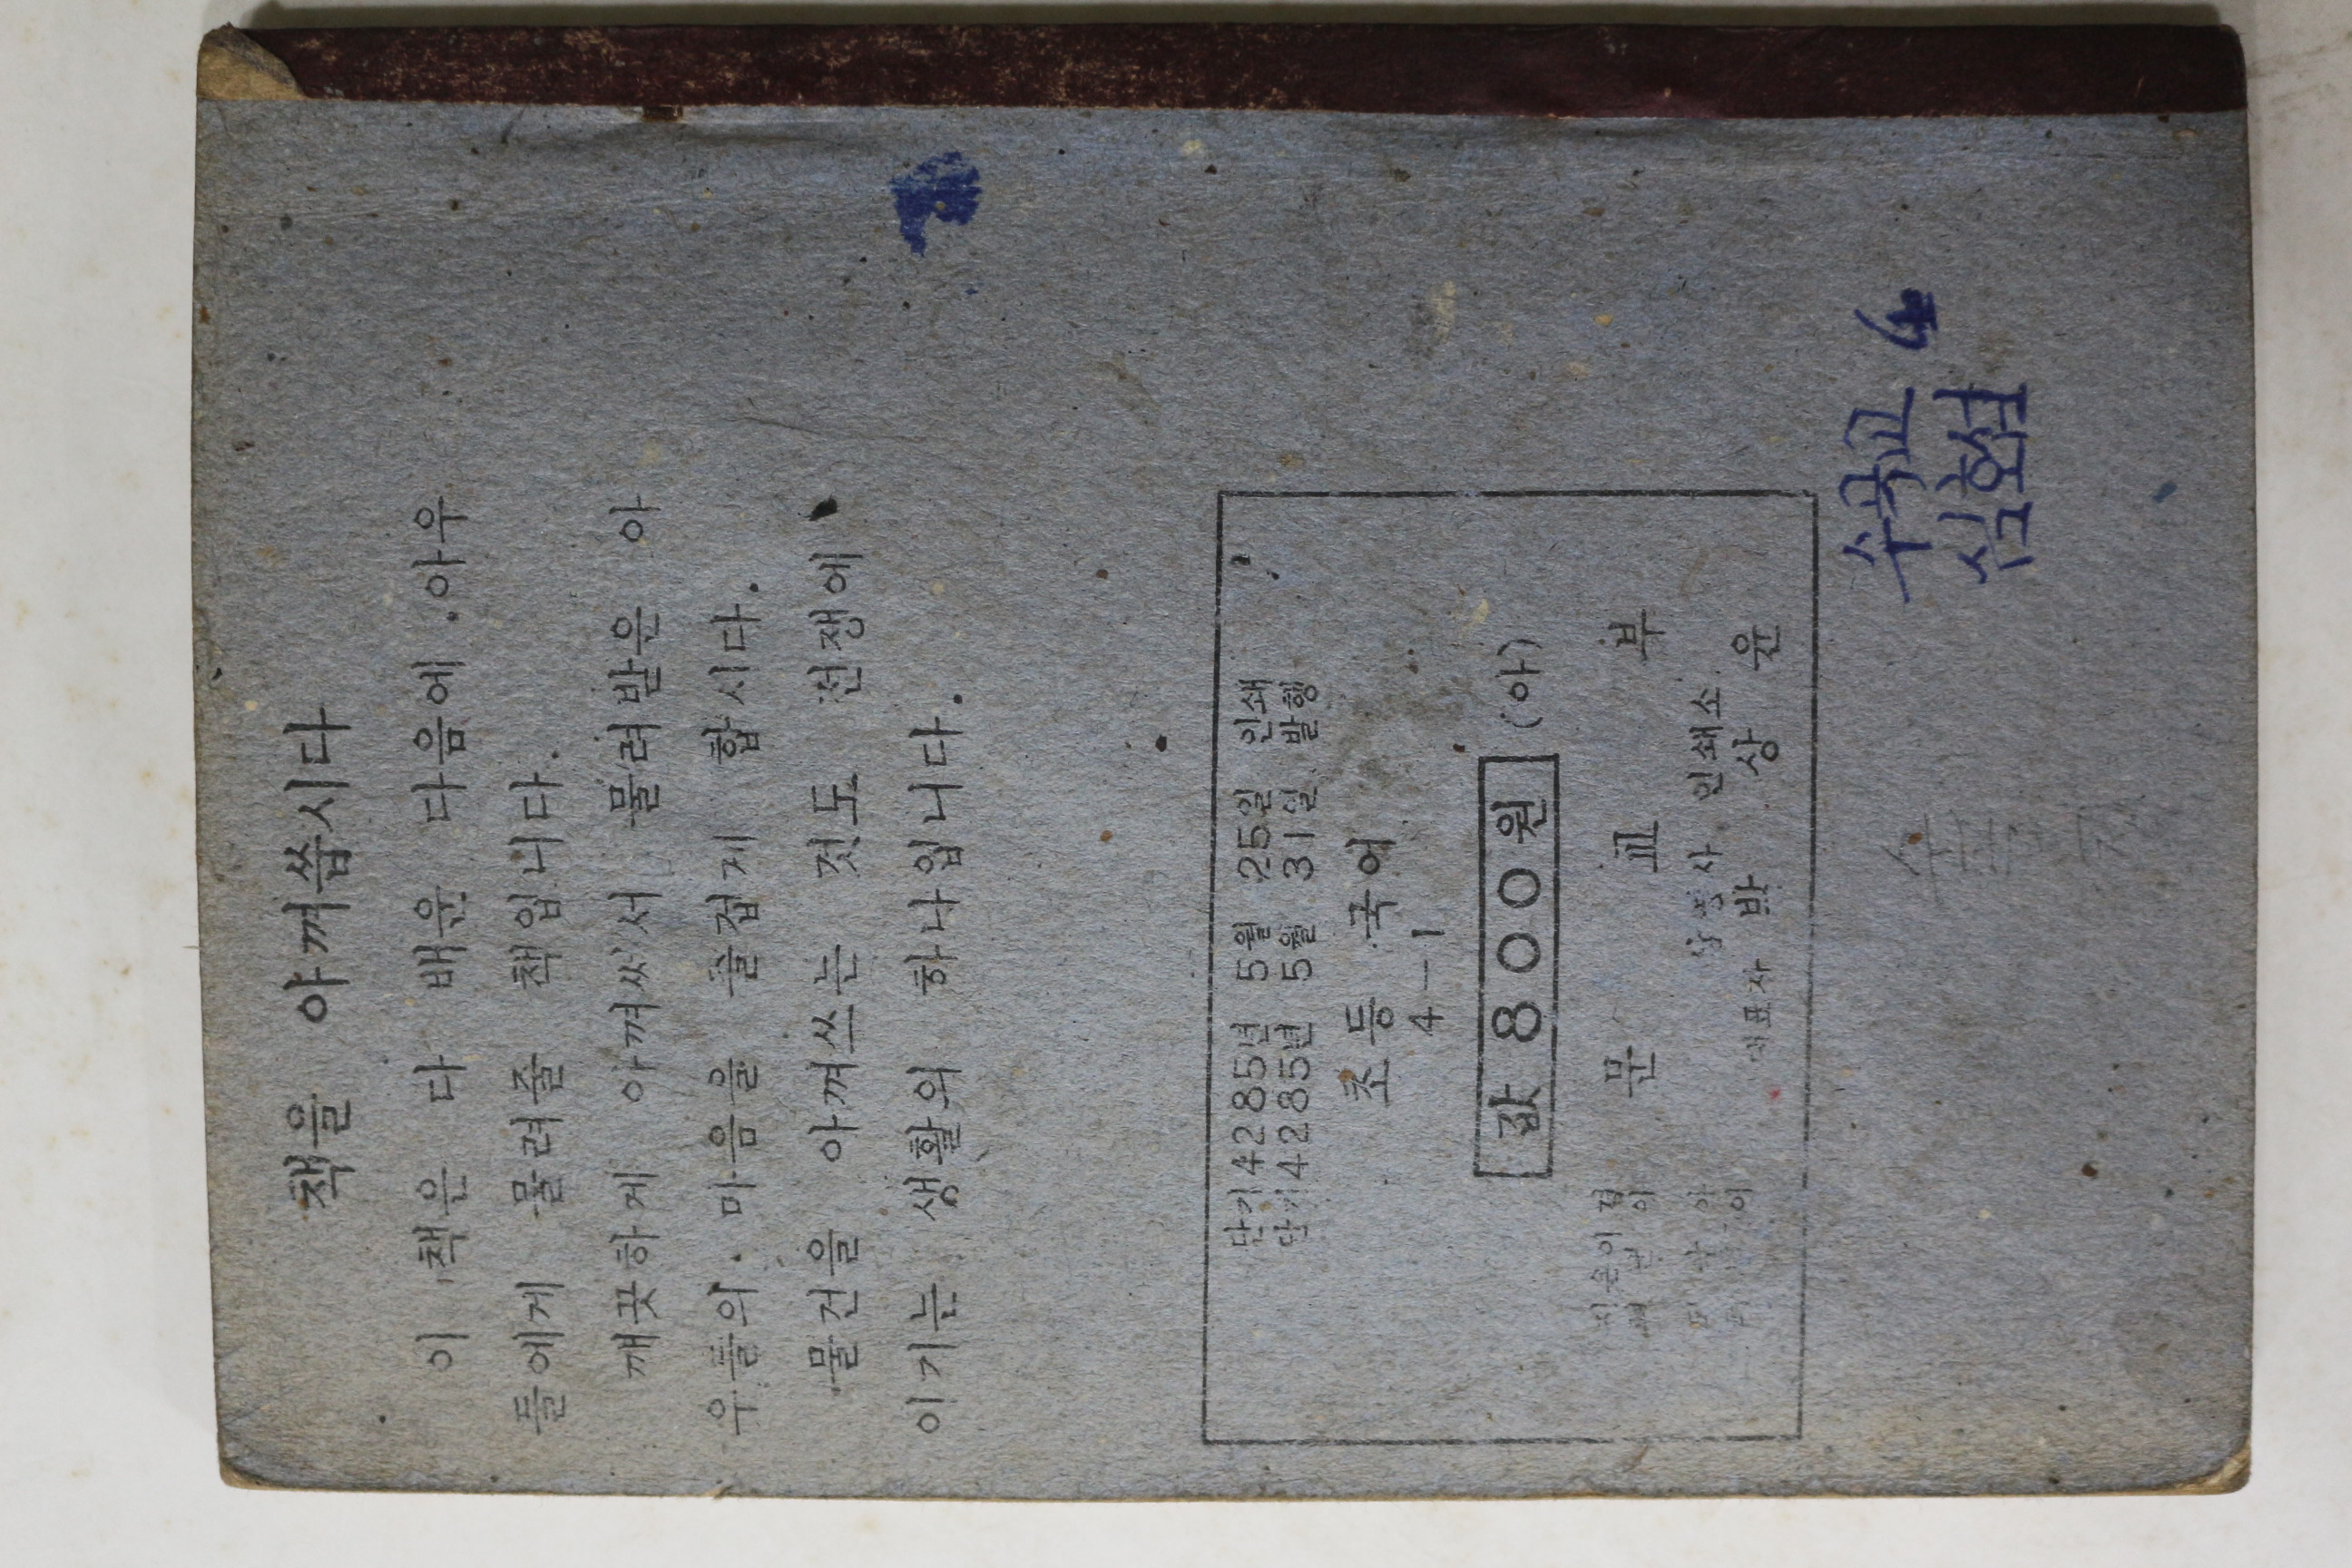 책을 아껴씁시다
이 책은 다 배운 다음에 아우
들에게 물려줄 책입니다.
깨끗하게 아껴써서 물려받은 아
우들의 마음을 즐겁게 합시다.
물건을 아껴쓰는 것도 전쟁에
이기는 생활의 하나입니다.
단기 4285년 5월 25일 인쇄
단기 4285년 5월 31일 발행
초등 국어
4—1
값 800원 (아)
문 교 부
인쇄소
대표자 박 상 윤
수국교 4
심현섭